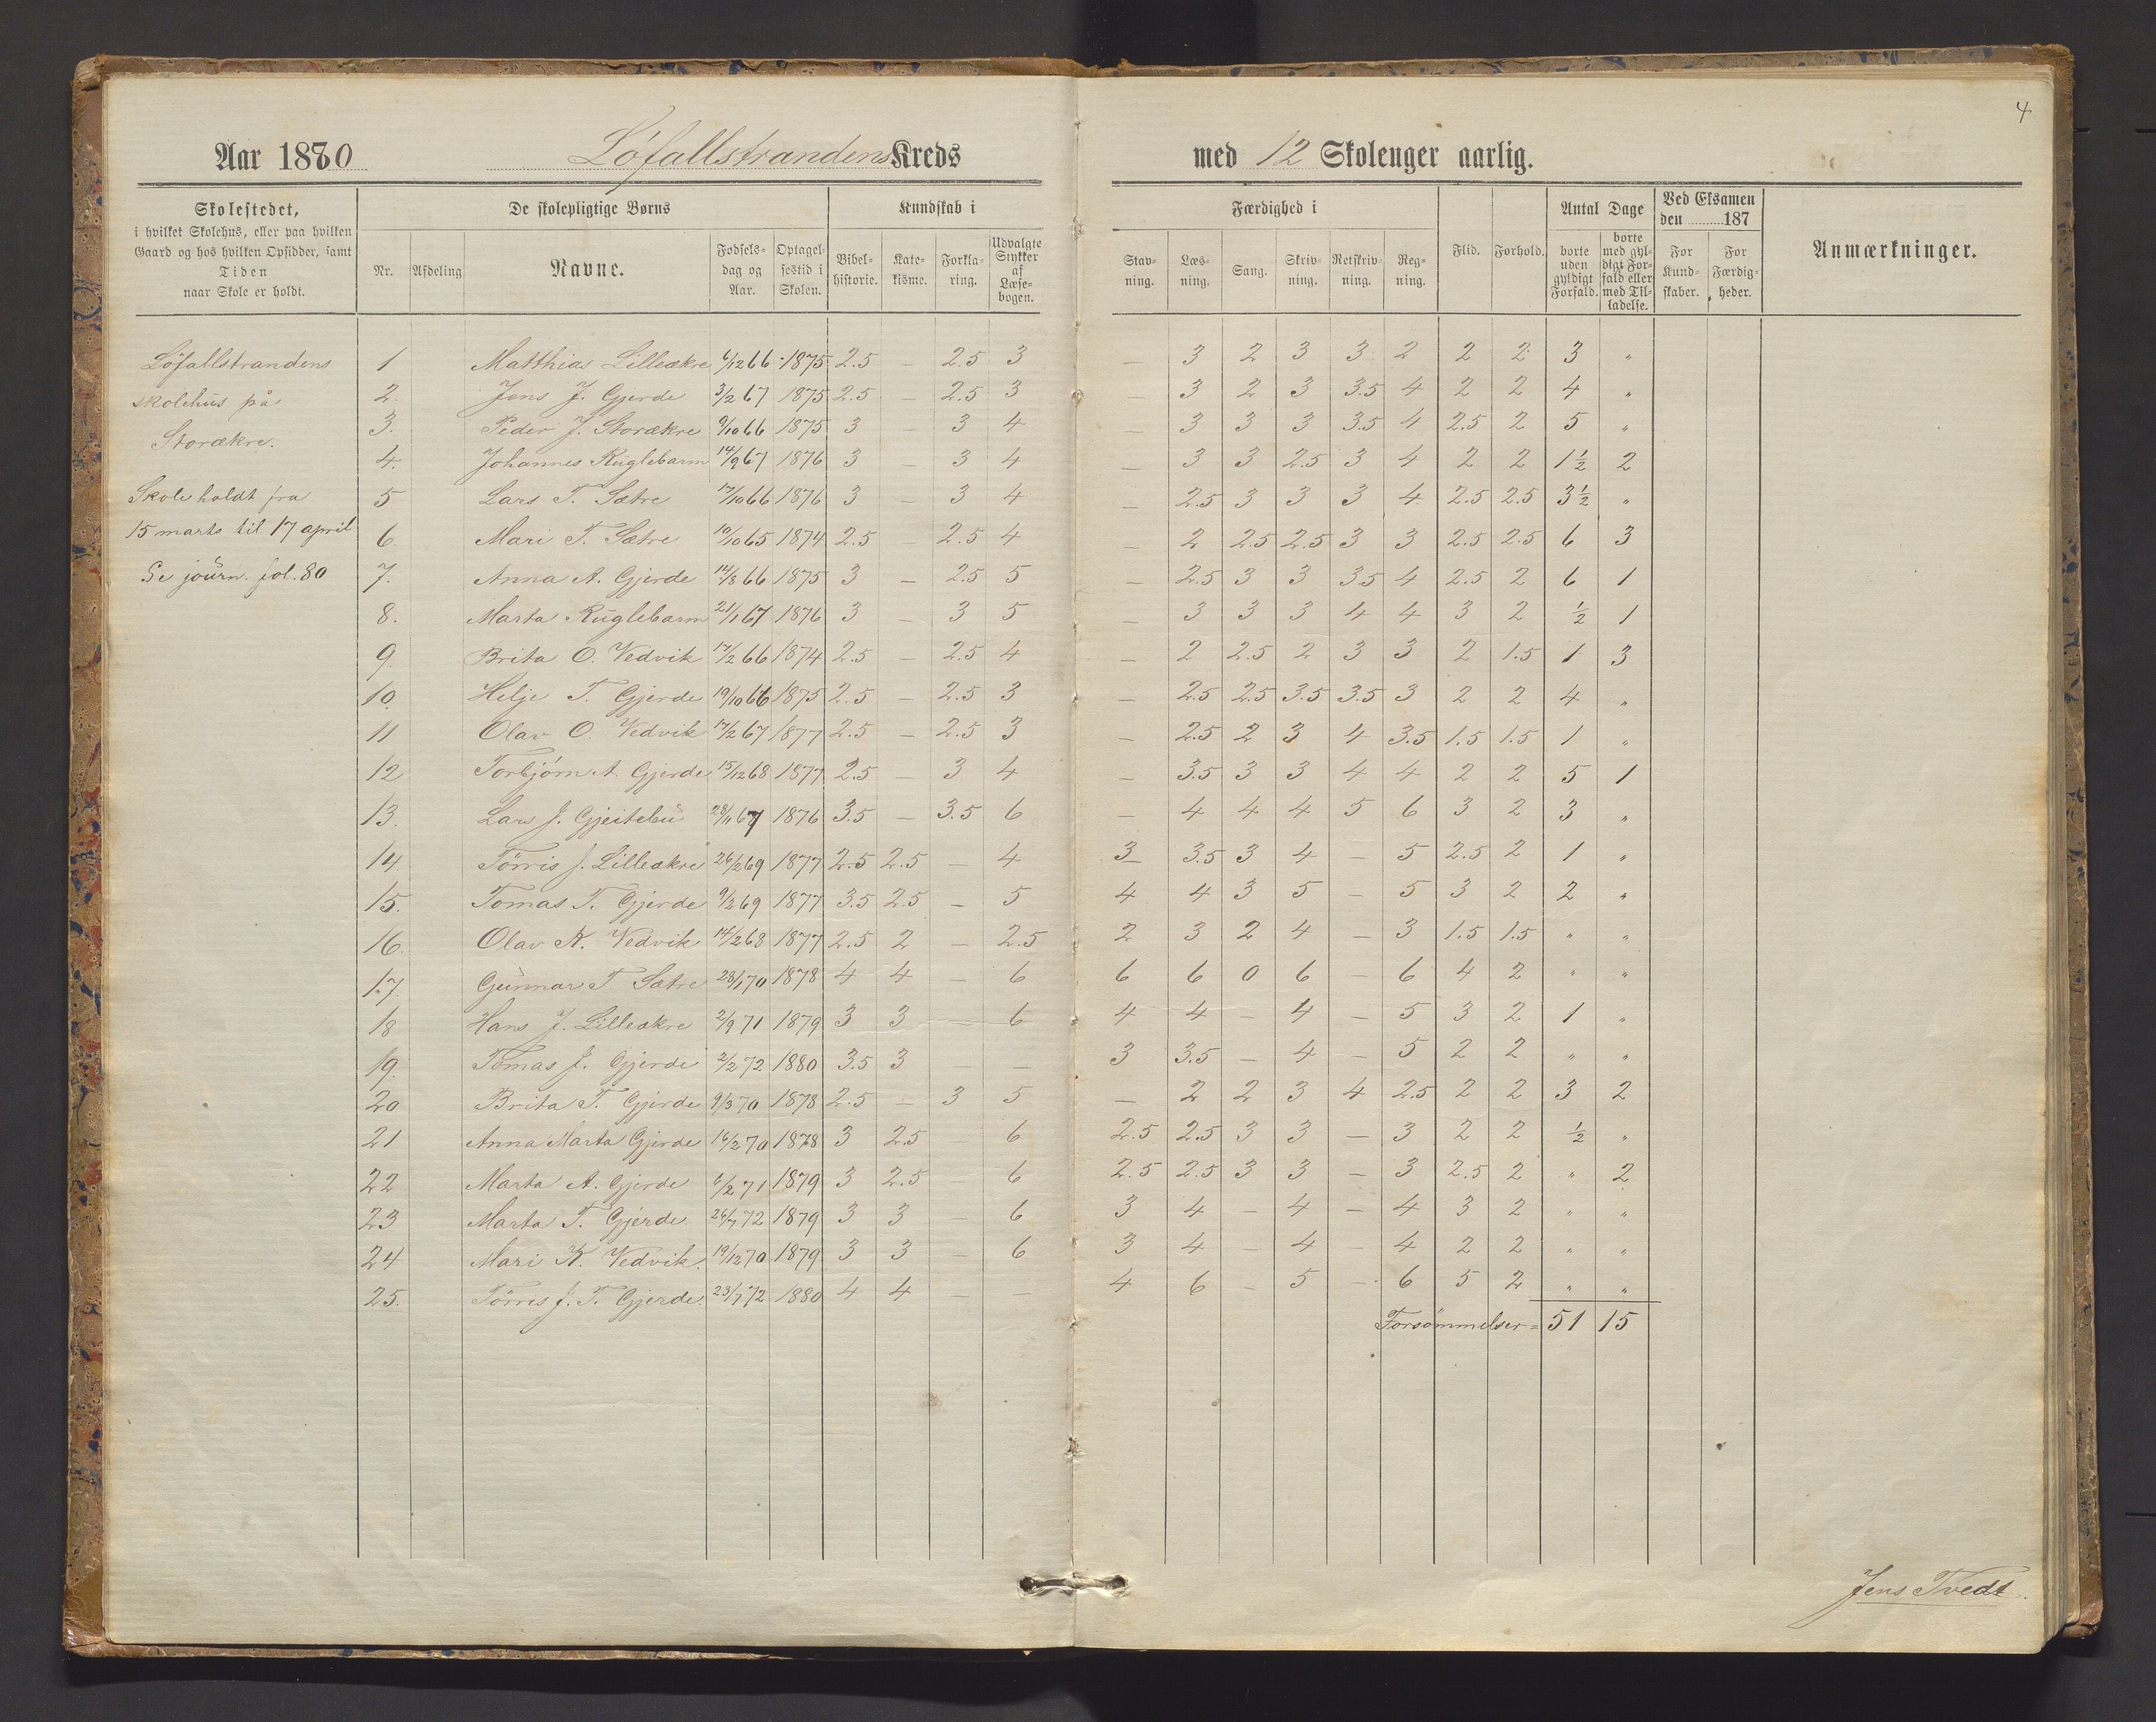 4
Aar 1880 Löfallstrandens Kreds med 12 Skoleuger aarlig.
Skolestedet,
i hvilket Skolehus, eller paa hvilken
Gaard og hos hvilken Opsidder, samt
Tiden
naar Skole er holdt.
De skolepligtige Børns
Nr. Afdeling Navne. Fødsels-dag og Aar. Optagel-sestid i Skolen.
Kundskab i
Bibel-historie. Kate-kisme. Forkla-ring. Udvalgte Stykker af Læse-bogen.
Færdighed i
Stav-ning. Læs-ning. Sang. Skriv-ning. Retskriv-ning. Reg-ning.
Flid. Forhold.
Antal Dage
borte uden gyldigt Forfald. borte med gyl-digt For-fald eller med Til-ladelse.
Ved Eksamen den 187
For Kund-skaber. For Færdig-heder.
Anmærkninger.
Löfallstrandens
skolehus på
Storækre.
Skole holdt fra
15 marts til 17 april
Se journ. fol. 80
1 Matthias Lilleækre 6/12 66 1875 2.5 – 2.5 3 – 3 2 3 3 2 2 2 3 "
2. Jens J. Gjerde 3/2 67 1875 2.5 – 2.5 3 – 3 2 3 3.5 4 2 2 4 "
3. Peder J. Storækre 9/10 66 1875 3 – 3 4 – 3 3 3 3.5 4 2.5 2 5 "
4. Johannes Kuglebarm 14/9 67 1876 3 – 3 4 – 3 3 2.5 3 4 2 2 1½ 2
5 Lars T. Sætre 17/10 66 1876 3 – 3 4 – 2.5 3 3 3 4 2.5 2.5 3½ "
6. Mari T. Sætre 10/10 65 1874 2.5 – 2.5 4 – 2 2.5 2.5 3 3 2.5 2.5 6 3
7. Anna A. Gjerde 14/8 66 1875 3 – 2.5 5 – 2.5 3 3 3.5 4 2.5 2 6 1
8. Marta Kuglebarm 21/1 67 1876 3 – 3 5 – 3 3 3 4 4 3 2 ½ 1
9. Brita O. Vedvik 17/2 66 1874 2.5 – 2.5 4 – 2 2.5 2 3 3 2 1.5 1 3
10. Helje T. Gjerde 19/10 66 1875 2.5 – 2.5 3 – 2.5 2.5 3.5 3.5 3 2 2 4 "
11 Olav O. Vedvik 17/2 67 1877 2.5 – 2.5 3 – 2.5 2 3 4 3.5 1.5 1.5 1 "
12 Torbjörn A. Gjerde 15/12 68 1877 2.5 – 3 4 – 3.5 3 3 4 4 2 2 5 1
13. Lars J. Gjeitebu 28/11 67 1876 3.5 – 3.5 6 – 4 4 4 5 6 3 2 3 "
14. Törris J. Lilleækre 26/2 69 1877 2.5 2.5 – 4 3 3.5 3 4 – 5 2.5 2 1 "
15. Tomas T. Gjerde 9/2 69 1877 3.5 2.5 – 5 4 4 3 5 – 5 3 2 2 "
16. Olav K. Vedvik 14/2 68 1877 2.5 2 – 2.5 2 3 2 4 – 3 1.5 1.5 " "
17. Gunnar T. Sætre 28/1 70 1878 4 4 – 6 6 6 0 6 – 6 4 2 " "
18 Hans J. Lilleækre 2/9 71 1879 3 3 – 6 4 4 – 4 – 5 3 2 1 "
19. Tomas J. Gjerde 2/2 72 1880 3.5 3 – – 3 3.5 – 4 – 5 2 2 " "
20 Brita T. Gjerde 9/3 70 1878 2.5 – 3 5 – 2 2 3 4 2.5 2 2 3 2
21 Anna Marta Gjerde 16/2 70 1878 3 2.5 – 6 2.5 2.5 3 3 – 3 2 2 ½ "
22 Marta A. Gjerde 6/2 71 1879 3 2.5 6 2.5 2.5 3 3 – 3 2.5 2 " 2
23 Marta T. Gjerde 26/7 72 1879 3 3 – 6 3 4 – 4 – 4 3 2 " "
24 Mari K. Vedvik. 19/12 70 1879 3 3 – 6 3 4 – 4 – 4 2 2 " "
25. Törris J. T. Gjerde. 23/7 72 1880 4 4 – – 4 6 – 5 – 6 5 2 " "
Forsömmelser = 51 15
Jens Tvedt.